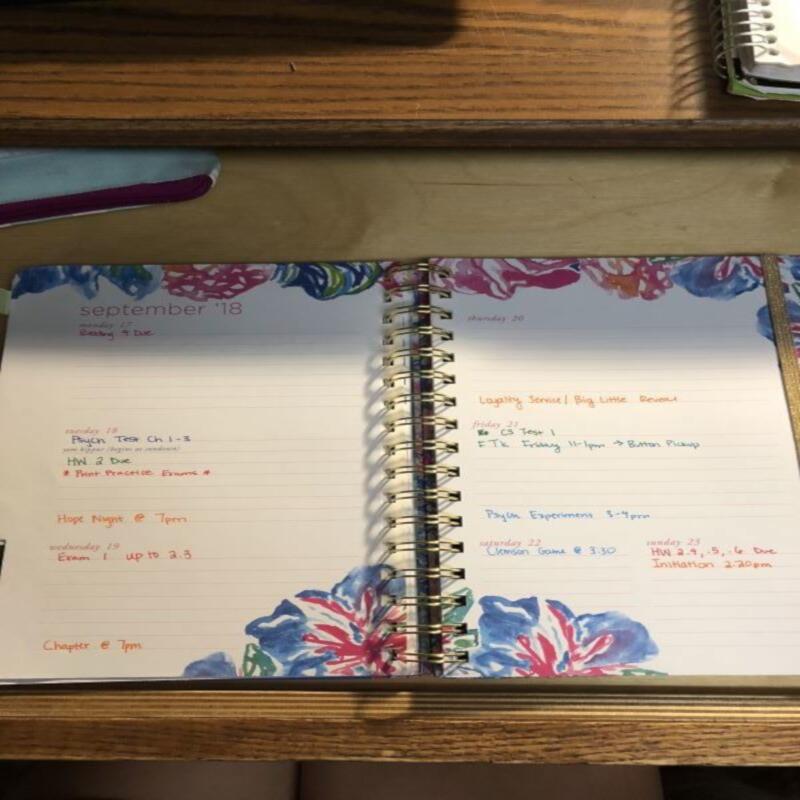 september '18
monday 17
Reading 4 Due
tuesday 18
Psych Test Ch 1-3
yom kippur (begins at sundown)
HW 2 Due
* Print Practice Exams *
Hope Night @ 7pm
wednesday 19
Exam 1 up to 2.3
Chapter @ 7pm
thursday 20
Loyalty Service / Big Little Reveal
friday 21
CS Test 1
FTK Friday 11-1pm → Button Pickup
Psych Experiment 3-4pm
saturday 22
Clemson Game @ 3:30
sunday 23
HW 2.4, .5, .6 Due
Initiation 2:20pm